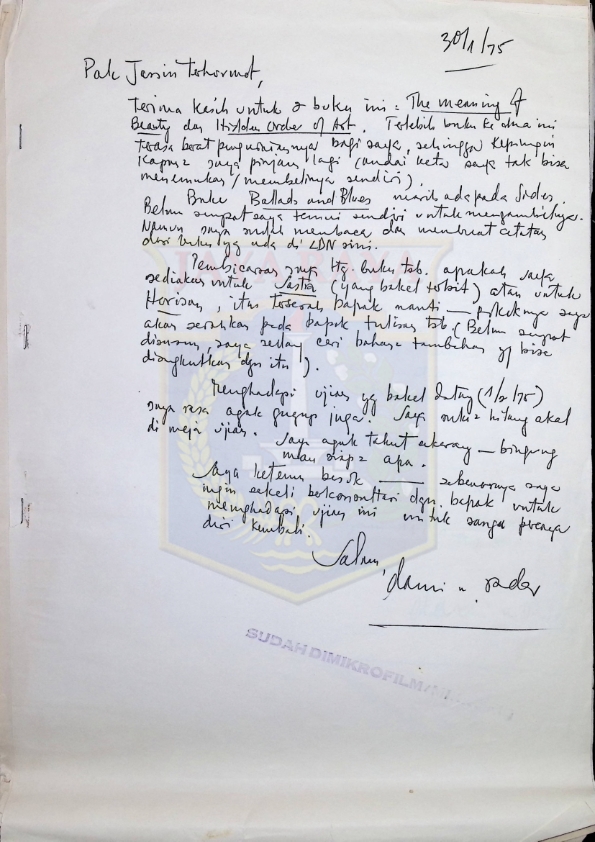 30/1/75
Pak Jassin Terhormat,
Terima kasih untuk 2 buku ini: The meaning of
Beauty dan Hidden Order of Art. Terlebih buku ke dua ini
terasa berat pengurniannya bagi saya, sehingga kepingin
kapan2 saya pinjam lagi (andai kata saya tak bisa
menemukan/membelinya sendiri).
Buku Ballads and Blues masih ada pada
Belum sempat saya temui sendiri untuk mengambilnya.
Namun saya sudah membaca dan membuat catatan
dari buku yg ada di LDN sini.
Pembicaraan saya ttg. buku tsb. apakah saya
sediakan untuk Sastra (yang bakal terbit) atau untuk
Horison, itu terserah bapak nanti — pokoknya saya
akan serahkan pada bapak tulisan tsb (Belum sempat
disusun, saya sedang cari bahan2 tambahan yg bisa
diangkutkan dgn itu).
Menghadapi ujian yg bakal datang (1/2/75)
saya rasa agak gugup juga. Saya suka hilang akal
di meja ujian. Saya agak takut sekarang — bingung
mau siap2 apa.
Saya ketemu besok — sebenarnya saya
ingin sekali berkonsultasi dgn. bapak untuk
menghadapi ujian ini untuk
diri kembali.
Salam,
dami n. toda
JAYA RAYA
SUDAH DIMIKROFILM